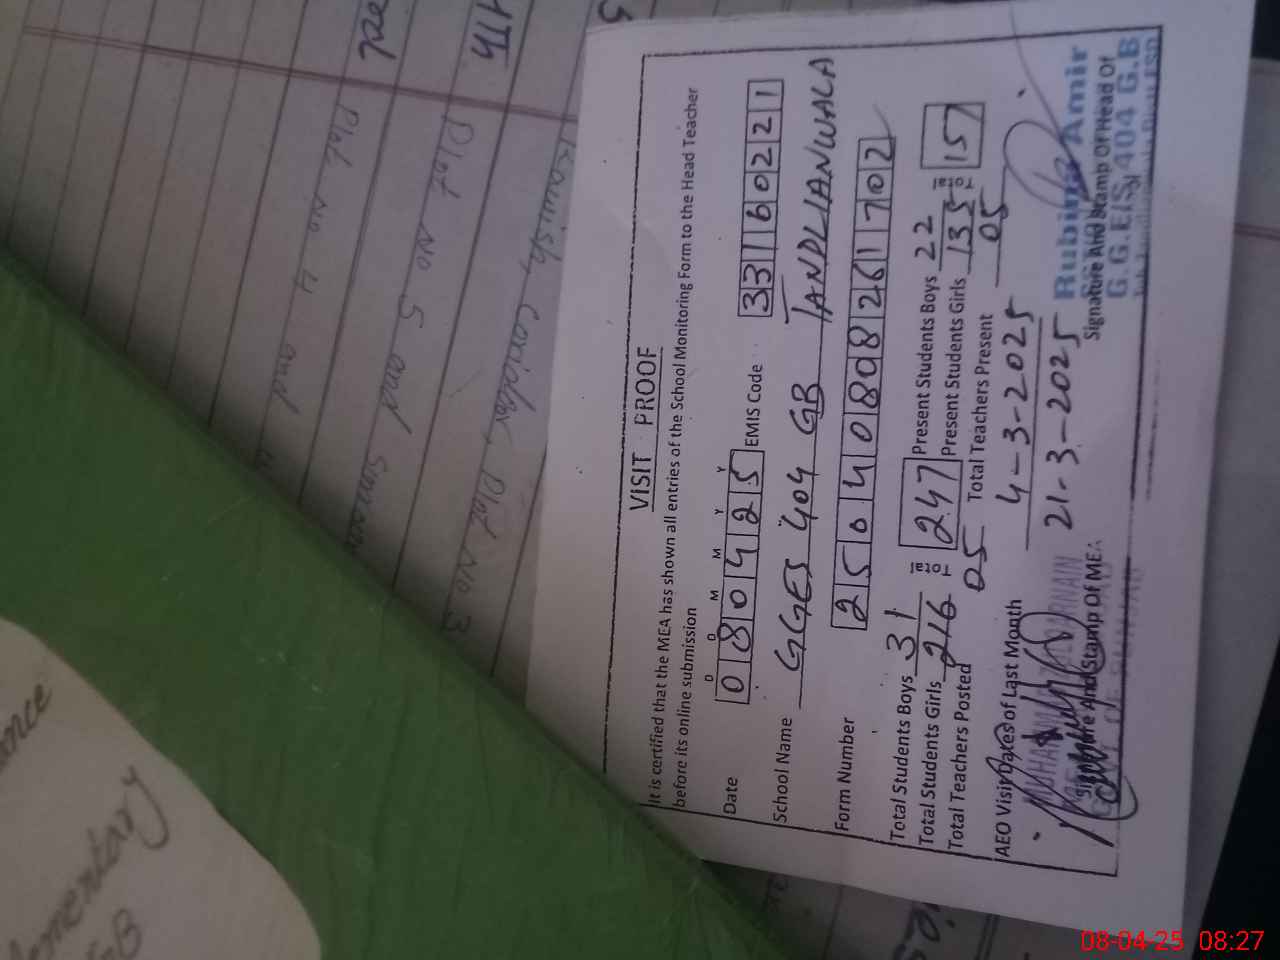 VISIT PROOF
It is certified that the MEA has shown all entries of the School Monitoring Form to the Head Teacher
before its online submission
D D M M Y Y
Date 0 8 0 4 2 5 EMIS Code 3 3 1 6 0 2 2 1
School Name GGES 404 GB TANDLIANWALA
Form Number 2 5 0 4 0 8 0 8 2 6 1 7 0 2
Total Students Boys 31 Total 247 Present Students Boys 22 Total 157
Total Students Girls 216 Present Students Girls 135
Total Teachers Posted 05 Total Teachers Present 05
AEO Visit Dates of Last Month 4-3-2025
21-3-2025
Signature And Stamp Of MEA
Signature And Stamp Of Head Of
Rubina Amir
G.G.E/S 404 G.B
Plot No 4 and
Plot No 5 and
Plot No 3
08-04-25 08:27